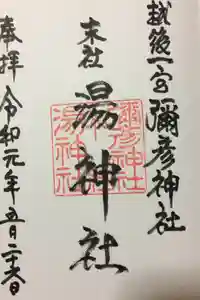 越後一宮彌彦神社
末社
湯神社
彌彦神社
湯神社
奉拝令和元年五月二十六日